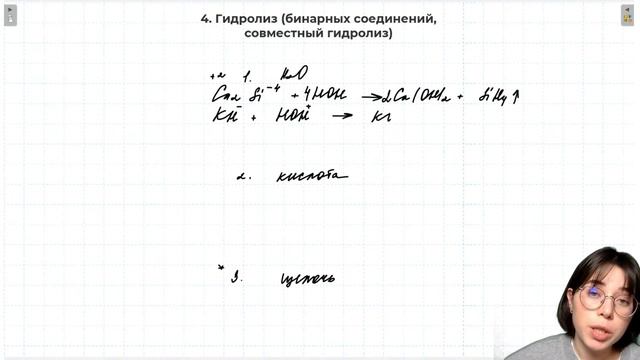 4. Гидролиз (бинарных соединений,
совместный гидролиз)
+2 1. H₂O
Ca₂ Si⁻⁴ + 4HOH → 2Ca(OH)₂ + SiH₄ ↑
KH⁻ + HOH⁺ → K
2. кислота
* 3. щелочь